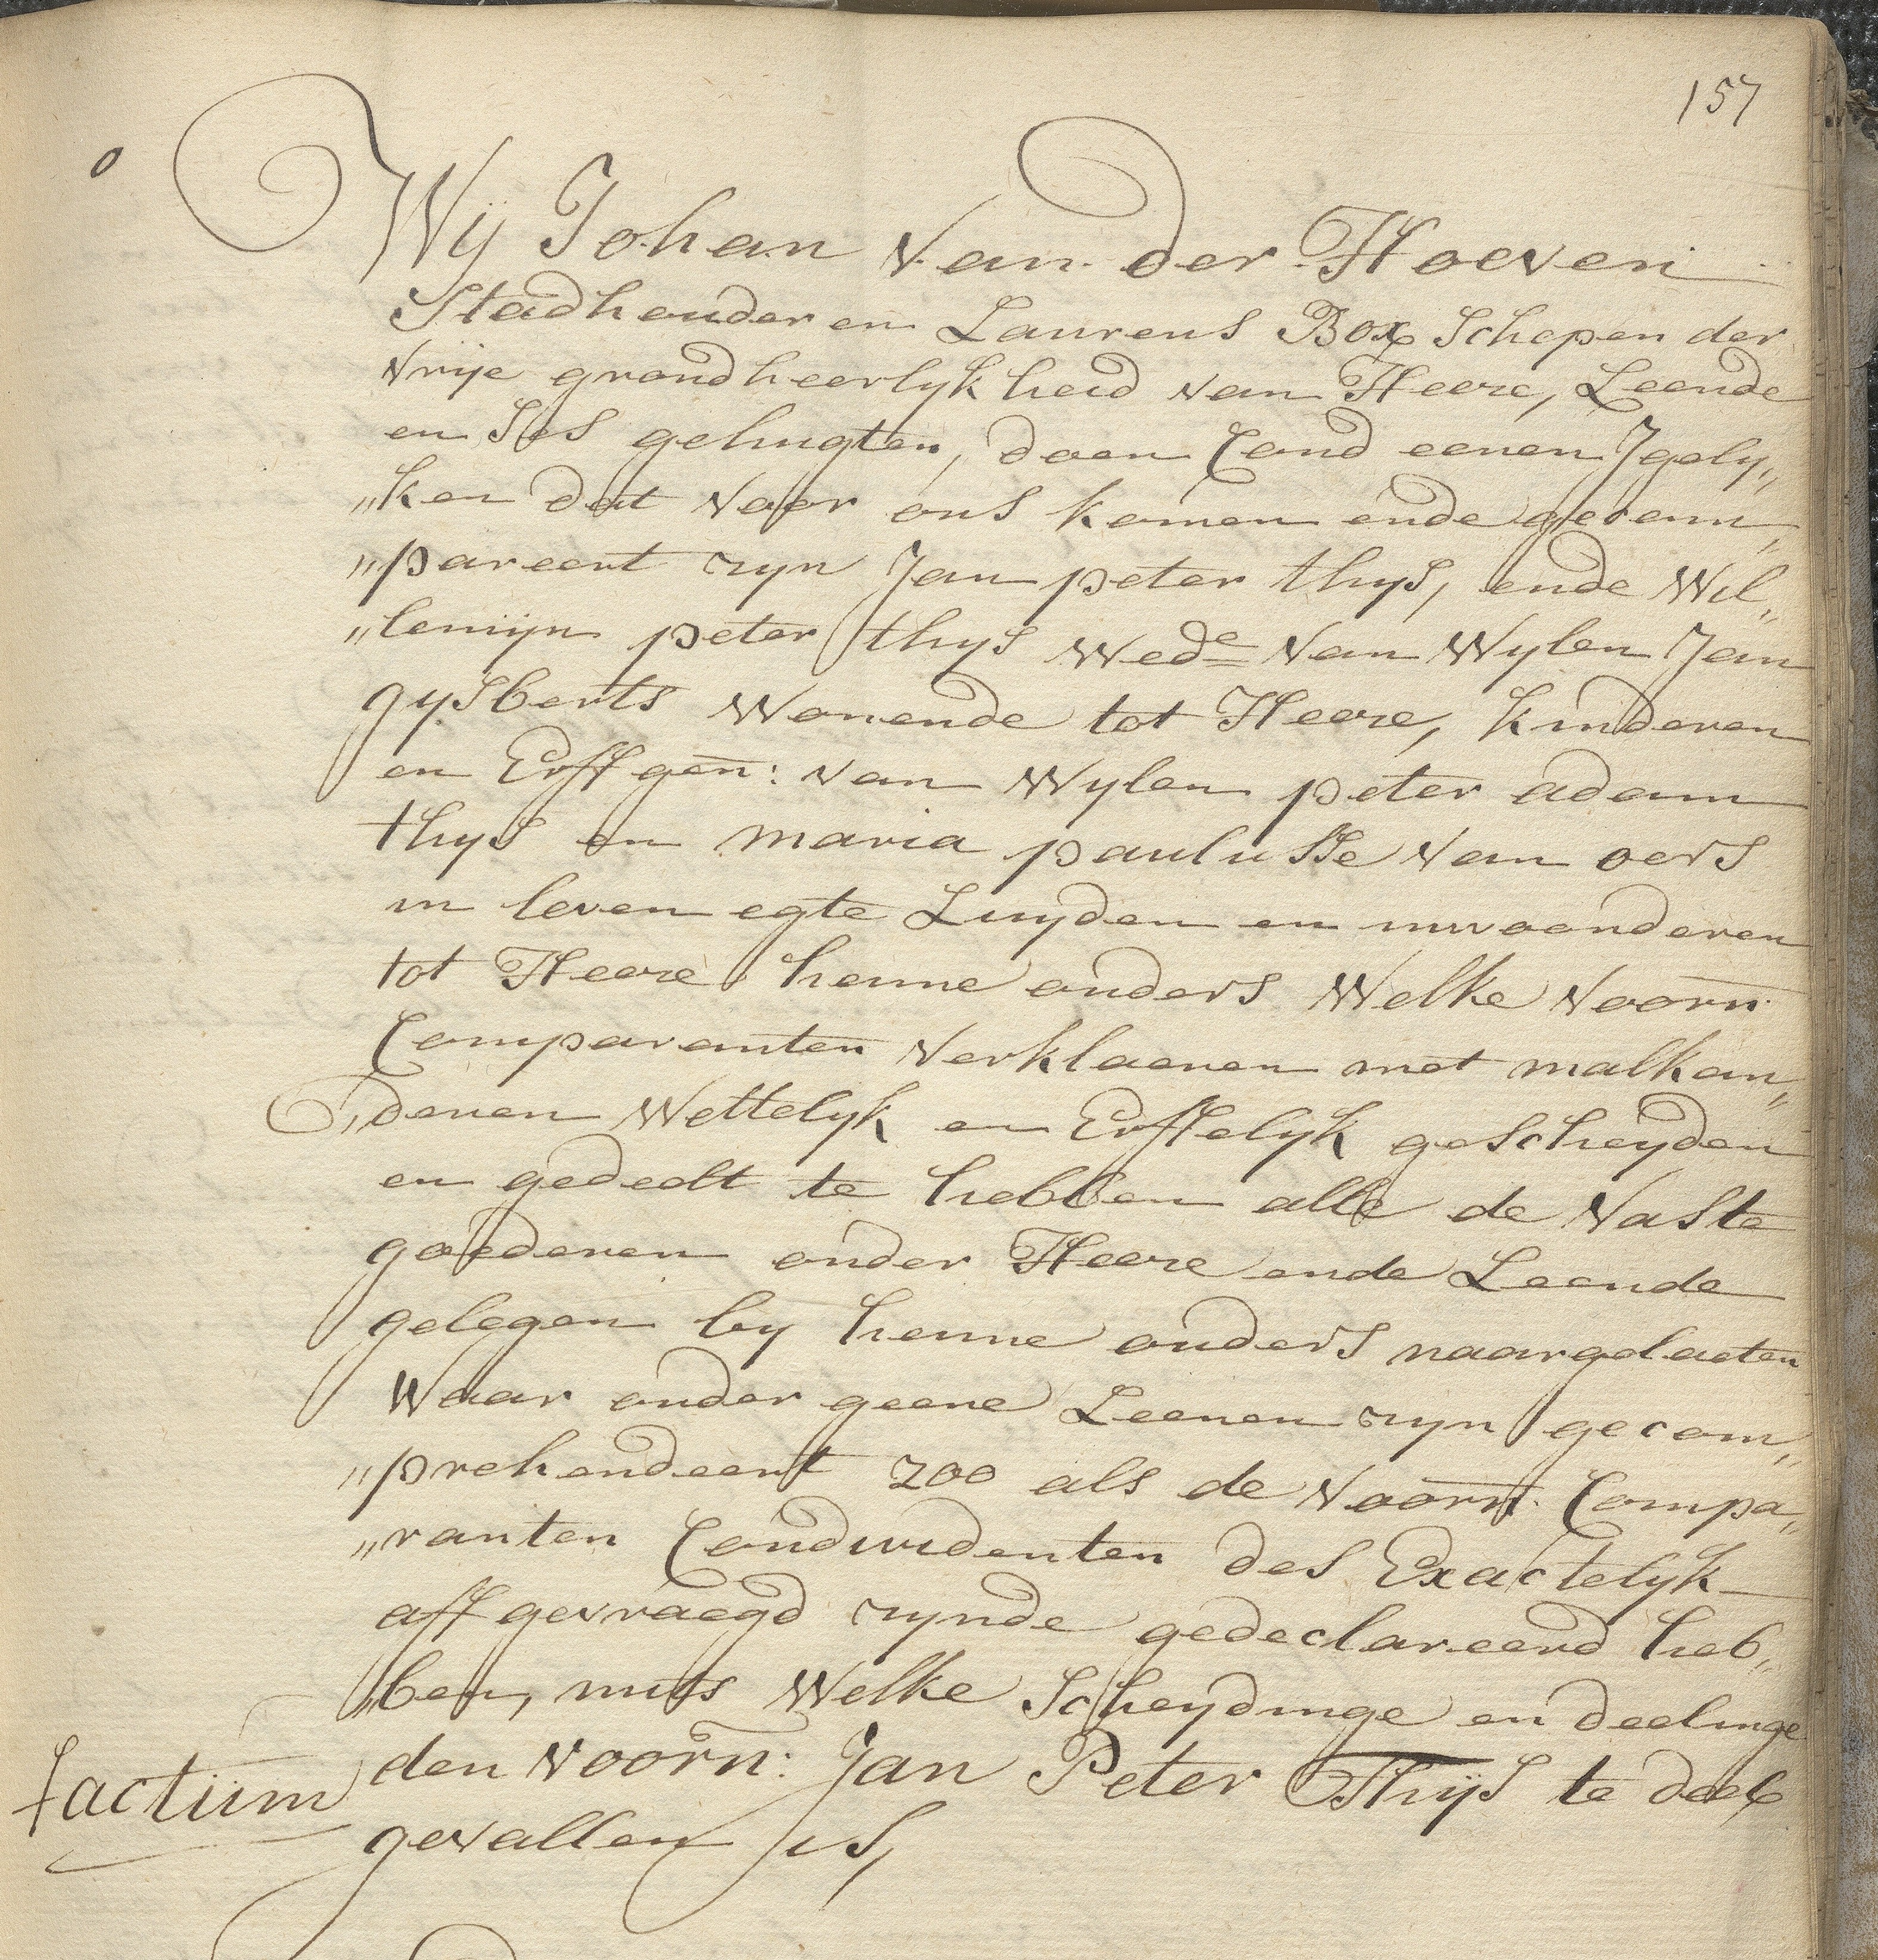 157
Wij Johan van der Hoeven
Stadhouder en Laurens Box Schepen der
vrije grondheerlykheid van Heeze, Leende
en Ses gehugten, doen Cond eenen Jgely„
„ken dat voor ons komen ende gecom„
„pareert zyn Jan peter thys, ende Wil„
„lemijn peter thys Wede van Wylen Jan
gysberts Wonende tot Heeze, kinderen
en Erffgen: van Wylen peter adam
thys en maria paulusse van oers
in leven egte Luyden en inwoonderen
tot Heeze henne ouders Welke voorn.
Comparanten verklaeren met malkan„
„deren Wettelyk en Erffelyk gescheyden
en gedeelt te hebben alle de vaste
goederen onder Heeze ende Leende
gelegen by henne ouders naargelaeten
Waar onder geene Leenen zyn gecom„
„prehendeert zoo als de voorn. Compa„
„ranten Condividenten des Exactelyk
affgevraegd zynde gedeclareerd heb„
„ben, mits Welke Scheydinge en deelinge
factum
den voorn: Jan Peter Thijs te deel
gevallen is,